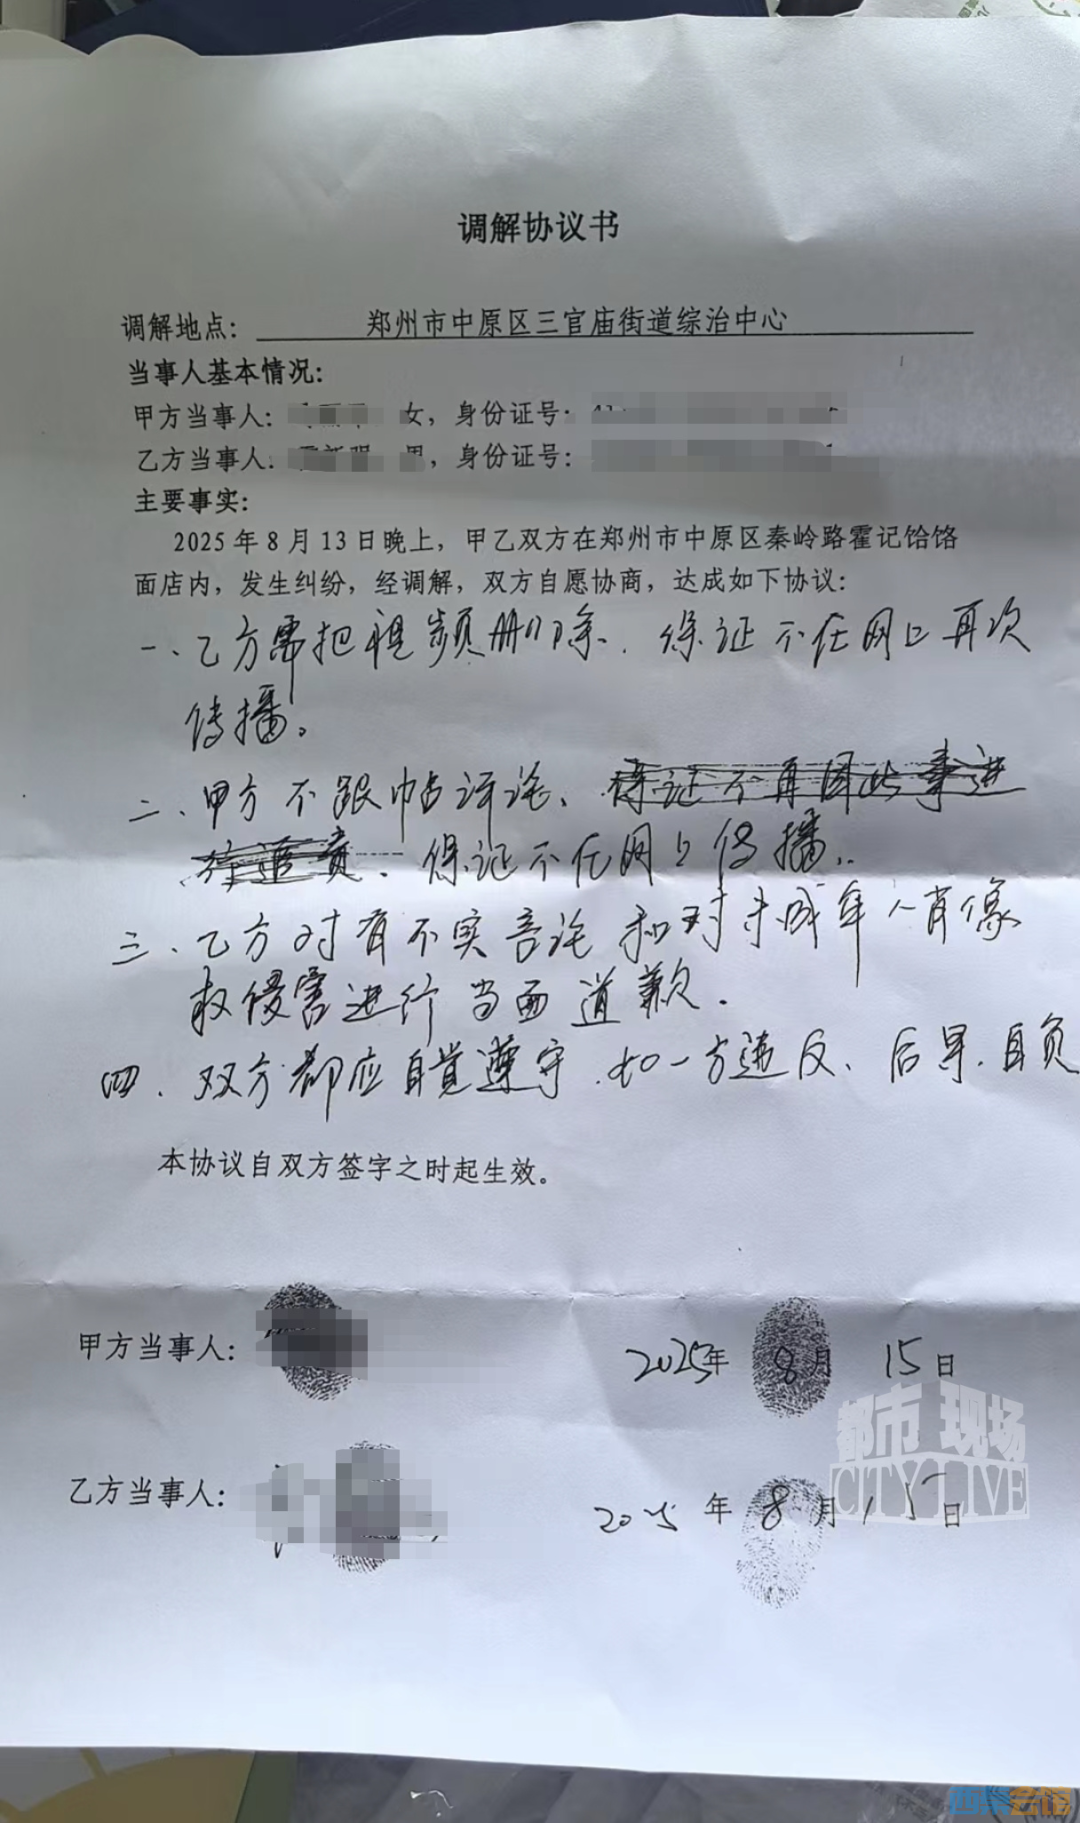 调解协议书
调解地点：郑州市中原区三官庙街道综治中心
当事人基本情况：
甲方当事人： 女，身份证号：
乙方当事人： 男，身份证号：
主要事实：
2025年8月13日晚上，甲乙双方在郑州市中原区秦岭路霍记饸饹
面店内，发生纠纷，经调解，双方自愿协商，达成如下协议：
一、乙方需把视频删除．保证不在网上再次
传播。
二、甲方不跟帖评论、保证不再因此事进
行追责．保证不在网上传播．
三、乙方对有不实言论和对未成年人肖像
权侵害进行当面道歉．
四、双方都应自觉遵守．如一方违反、后果自负
本协议自双方签字之时起生效。
甲方当事人： 2025年8月15日
乙方当事人： 2025年8月15日
都市现场
CITY LIVE
西祠会馆